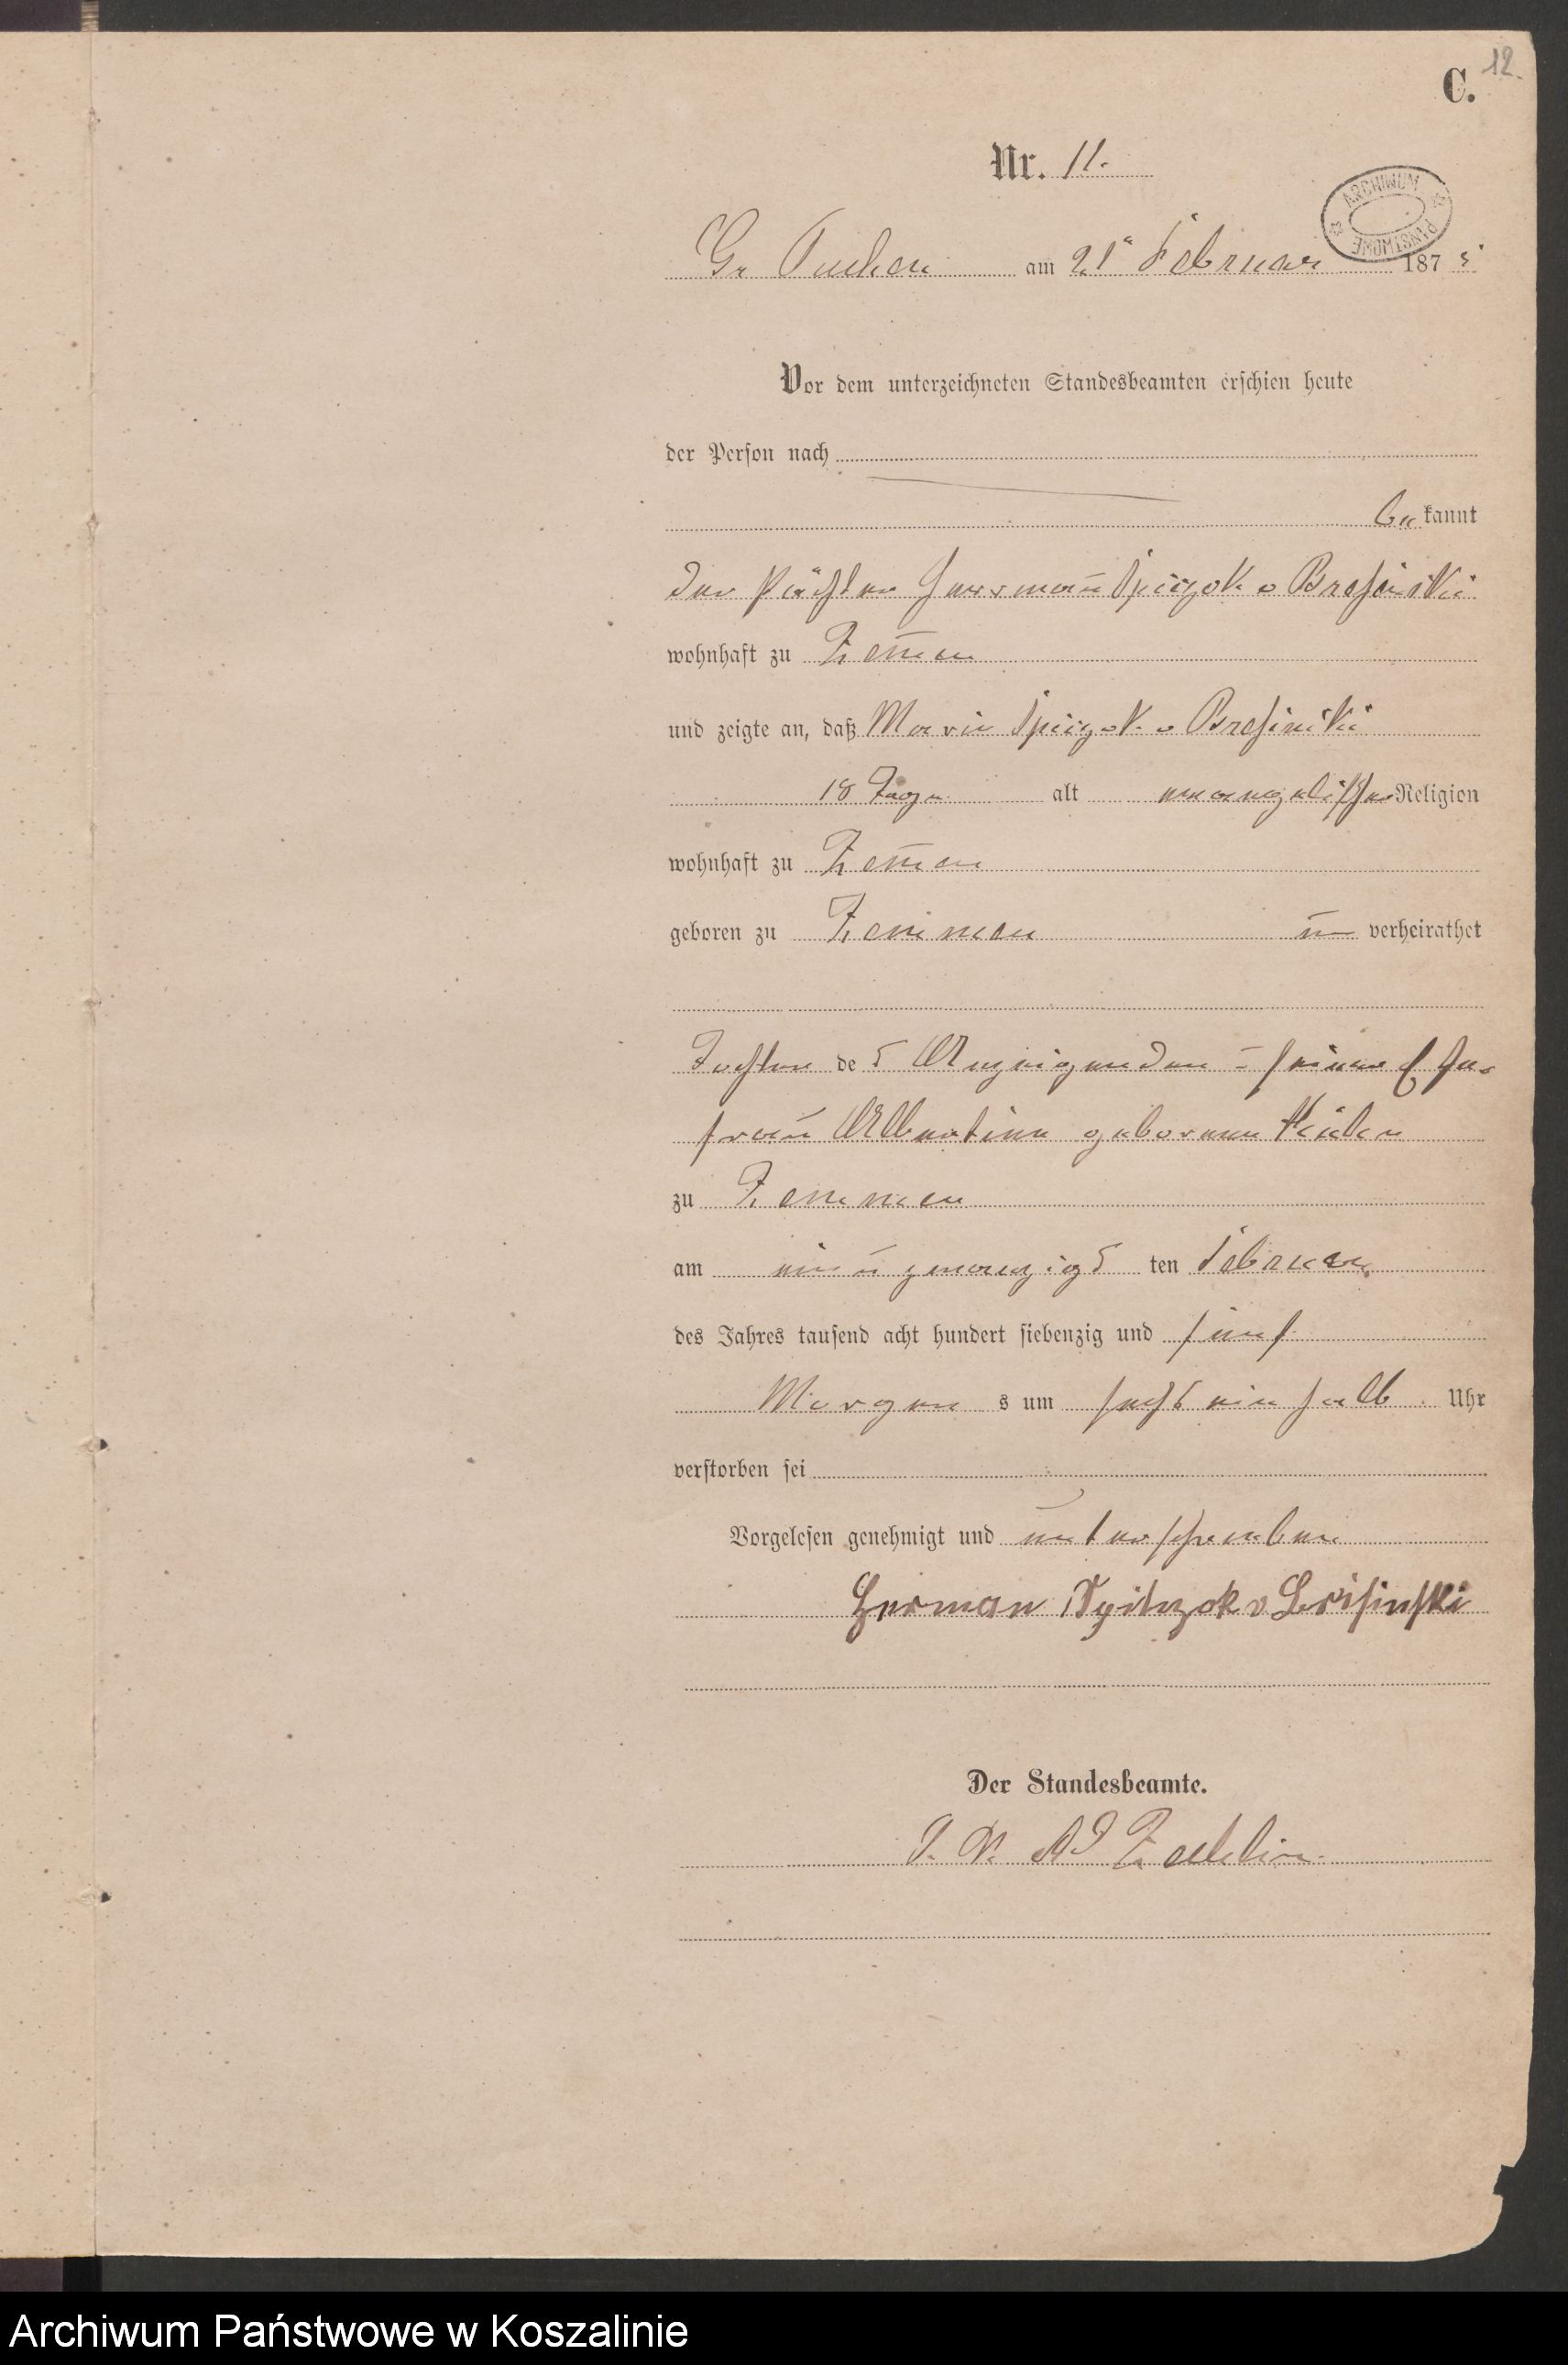 12.
C.
Nr. 11.
ARCHIWUM PAŃSTWOWE
Gr Tuchen am 21t Februar 1875
Vor dem unterzeichneten Standesbeamten erschien heute
der Person nach
bekannt
der Pächter Herrmann Spiczok v Bresinski
wohnhaft zu Zemen
und zeigte an, daß Marie Spiczok v Bresinski
18 Tage alt evangelischer Religion
wohnhaft zu Zemen
geboren zu Zemmen un verheirathet
Tochter des Anzeigenden u seiner Ehe-
frau Albertine geborene
zu Zemmen
am ein u zwanzigs ten Februar
des Jahres tausend acht hundert siebenzig und fünf
Morgen s um sechs ein halb Uhr
verstorben sei
Vorgelesen genehmigt und unterschrieben
Herman Spitzok v Brisinski
Der Standesbeamte.
I. V.
Archiwum Państwowe w Koszalinie